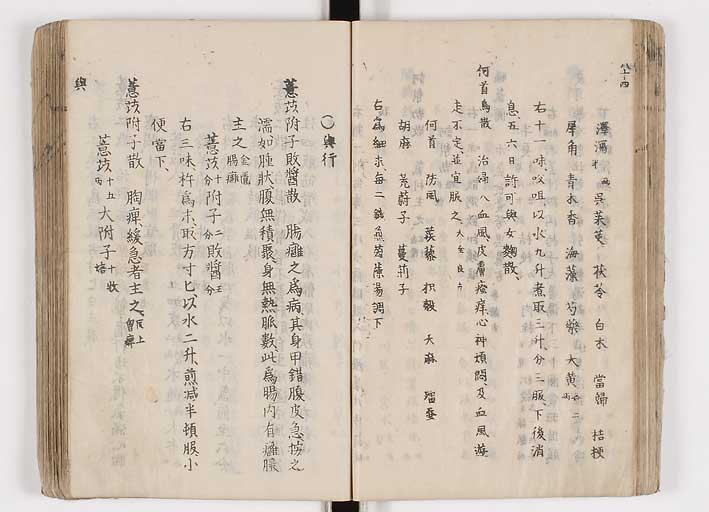 澤瀉 呉茱萸 茯苓 白朮 當歸 桔梗
犀角 青木香 海藻 芍藥 大黄
右十一味㕮咀以水九升煮取三升分三服下後消
息五六日許可與女麴散
何首烏散 治婦人血風皮膚瘙痒心神煩悶及血風遊
走不定並宜服之
何首 防風 蒺藜 枳殻 天麻 殭蚕
胡麻 茺蔚子 蔓荊子
右爲細末每二錢煎茵蔯湯調下
〇輿行
薏苡附子敗醬散 腸癰之爲病其身甲錯腹皮急按之
濡如腫狀腹無積聚身無熱脈數此爲腸内有癰膿
主之 金匱 腸癰
薏苡十分附子二分敗醬五分
右三味杵爲末取方寸匕以水二升煎减半頓服小
便當下
薏苡附子散 胸痺緩急者主之仝上
薏苡十五 大附子十枚
輿